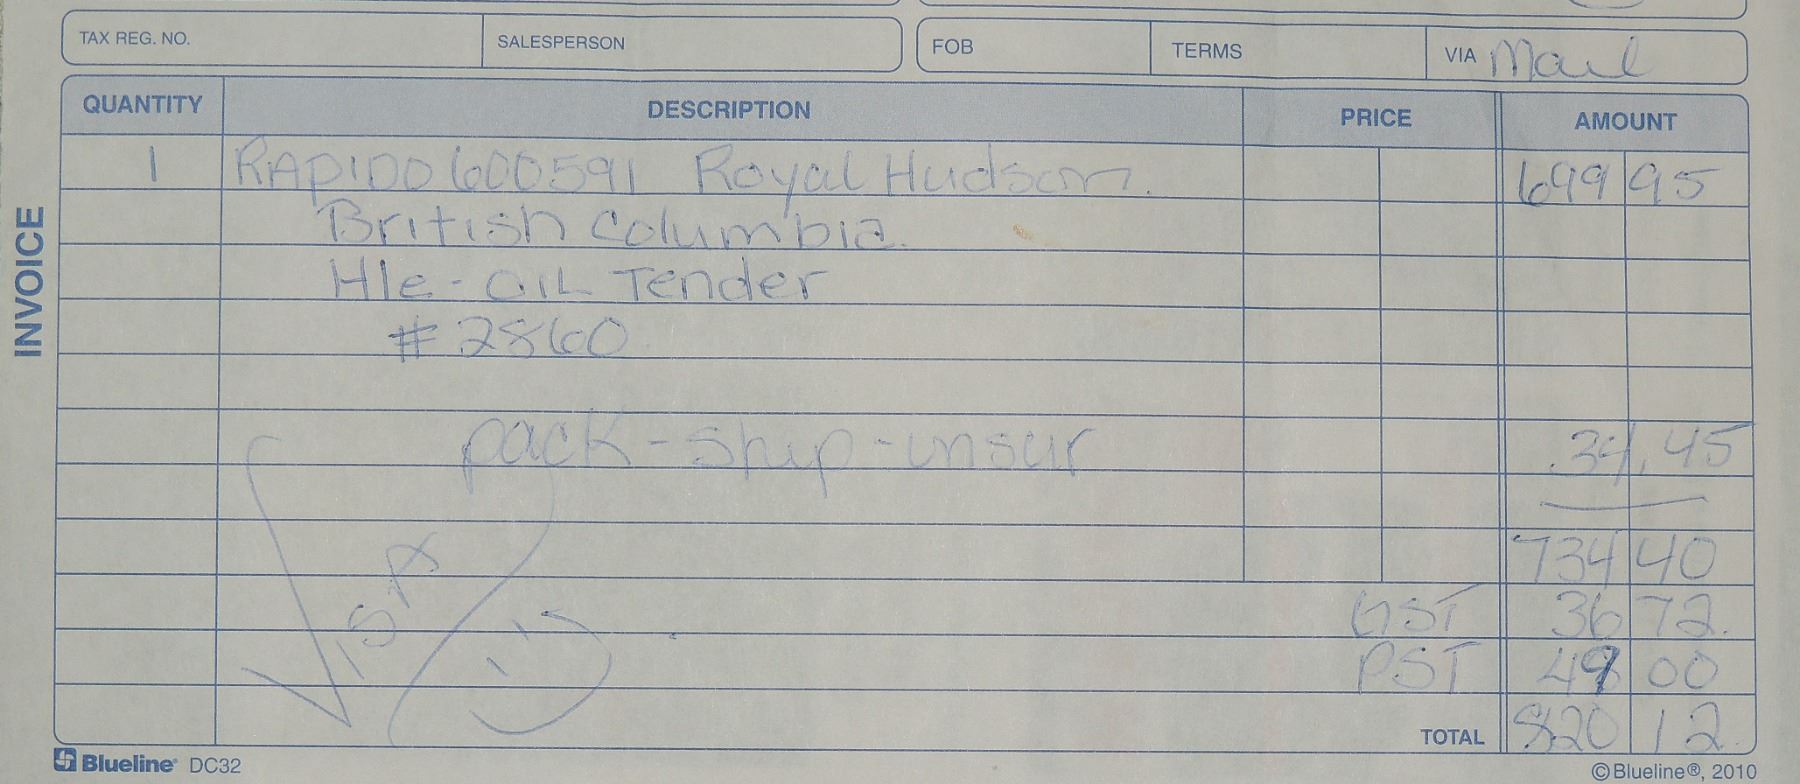 TAX REG. NO. SALESPERSON FOB TERMS VIA Mail
INVOICE
QUANTITY DESCRIPTION PRICE AMOUNT
1 RAPIDO 600591 Royal Hudson. 699 95
British Columbia.
H1e - OIL Tender
#2860
pack - ship - insur 34.45
734 40
GST 36 72
PST 49 00
VISA
TOTAL 820 12
Blueline® DC32 ©Blueline®, 2010